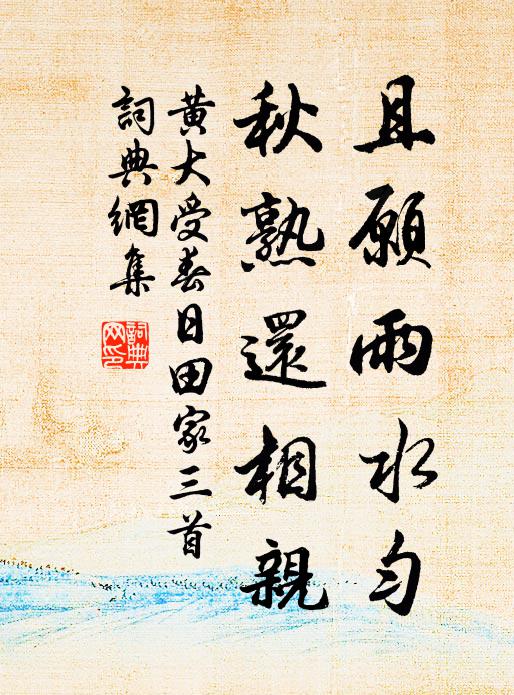 且願雨水勻
秋熟還相親
黃大受春日田家三首
詞典網集
詞典
网印